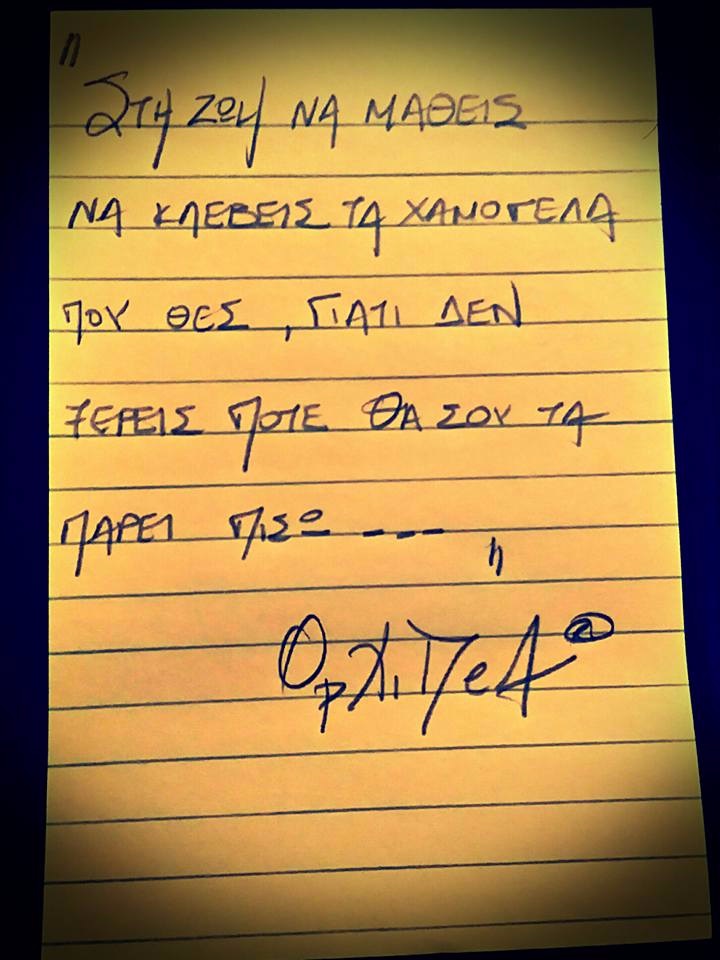 "ΣΤΗ ΖΩΗ ΝΑ ΜΑΘΕΙΣ
ΝΑ ΚΛΕΒΕΙΣ ΤΑ ΧΑΜΟΓΕΛΑ
ΠΟΥ ΘΕΣ , ΓΙΑΤΙ ΔΕΝ
ΞΕΡΕΙΣ ΠΟΤΕ ΘΑ ΣΟΥ ΤΑ
ΠΑΡΕΙ ΠΙΣΩ ---"